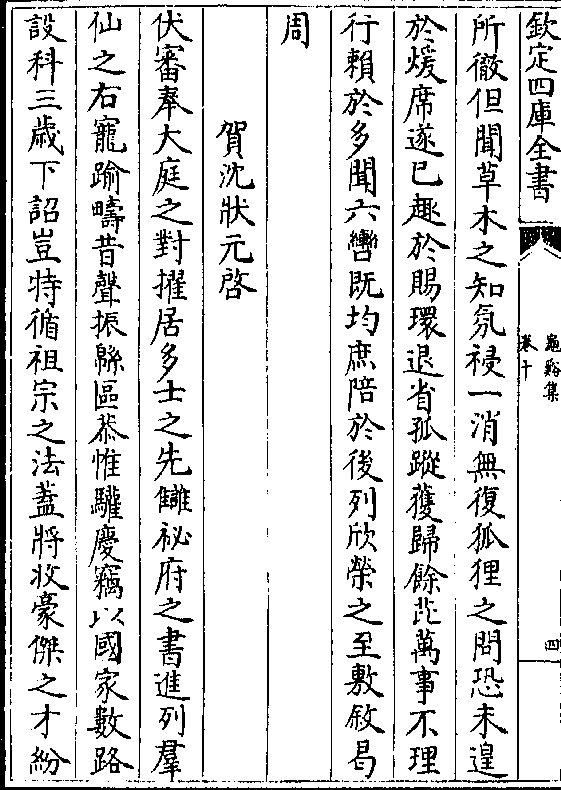 欽定四庫全書
龜谿集
卷十
四
所徹但聞草木之知氛祲一消無復狐狸之問恐未遑
於煖席遂已趣於賜環退省孤蹤獲歸餘芘萬事不理
行賴於多聞六轡既均庶陪於後列欣榮之至敷敘曷
周
賀沈狀元啓
伏審奉大庭之對擢居多士之先讎祕府之書進列羣
仙之右寵踰疇昔聲振緜區恭惟驩慶竊以國家數路
設科三歲下詔豈特循祖宗之法蓋將收豪傑之才紛